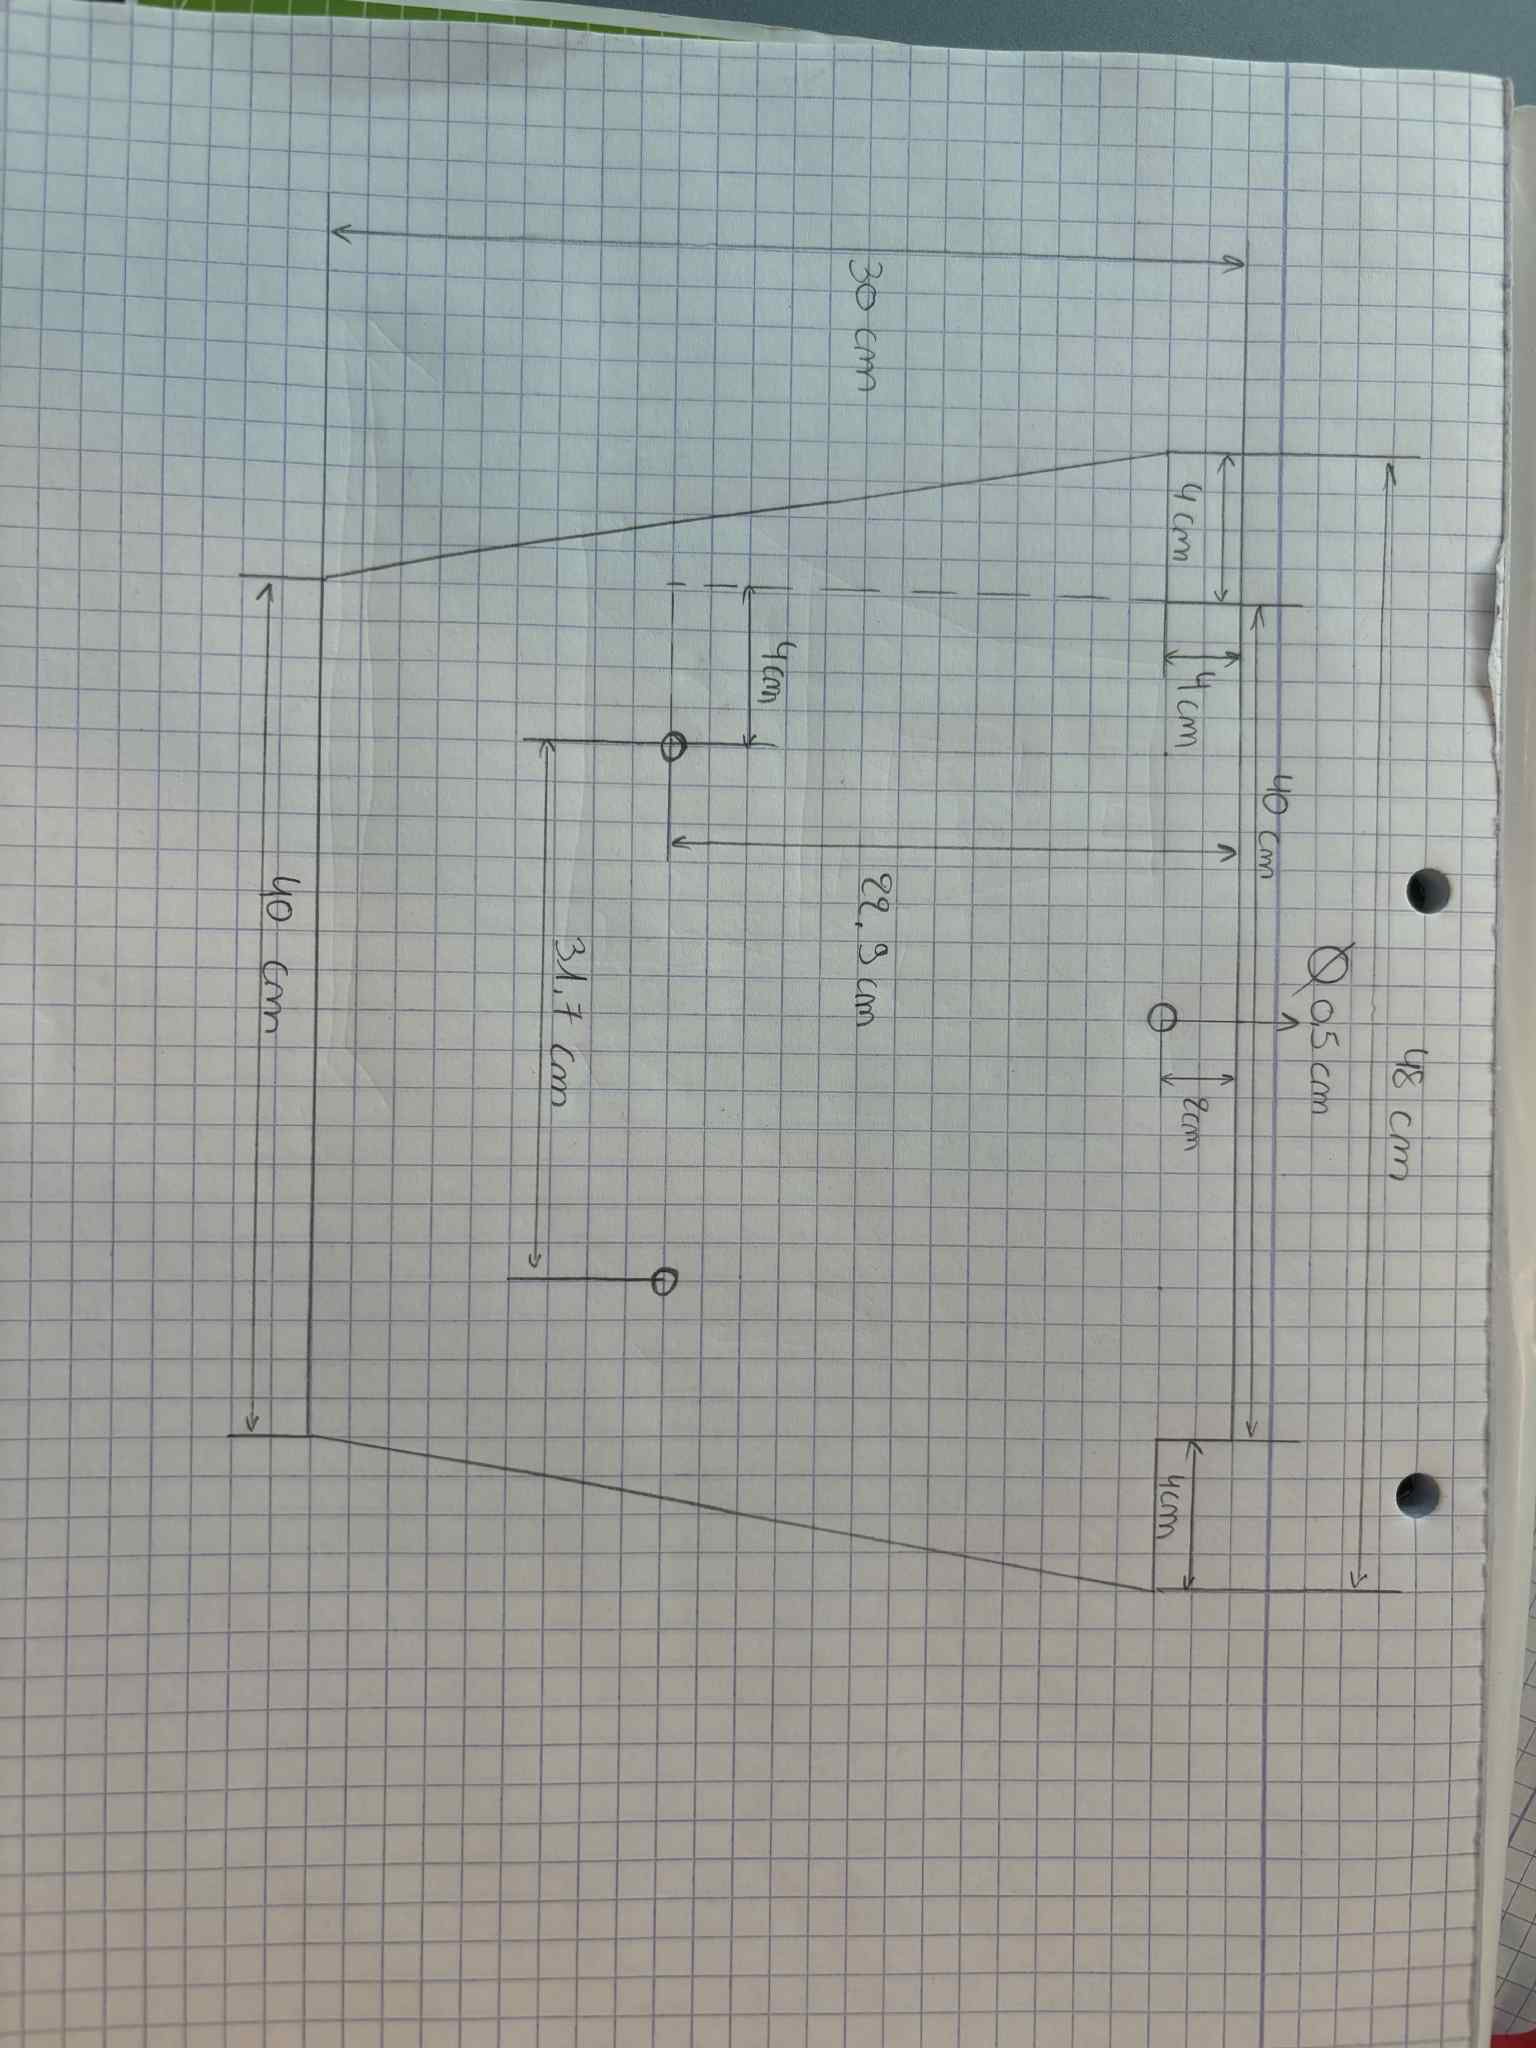 48 cm
Ø 0,5 cm
40 cm
4 cm
4 cm
2cm
4cm
30 cm
22,9 cm
4cm
31,7 cm
40 cm